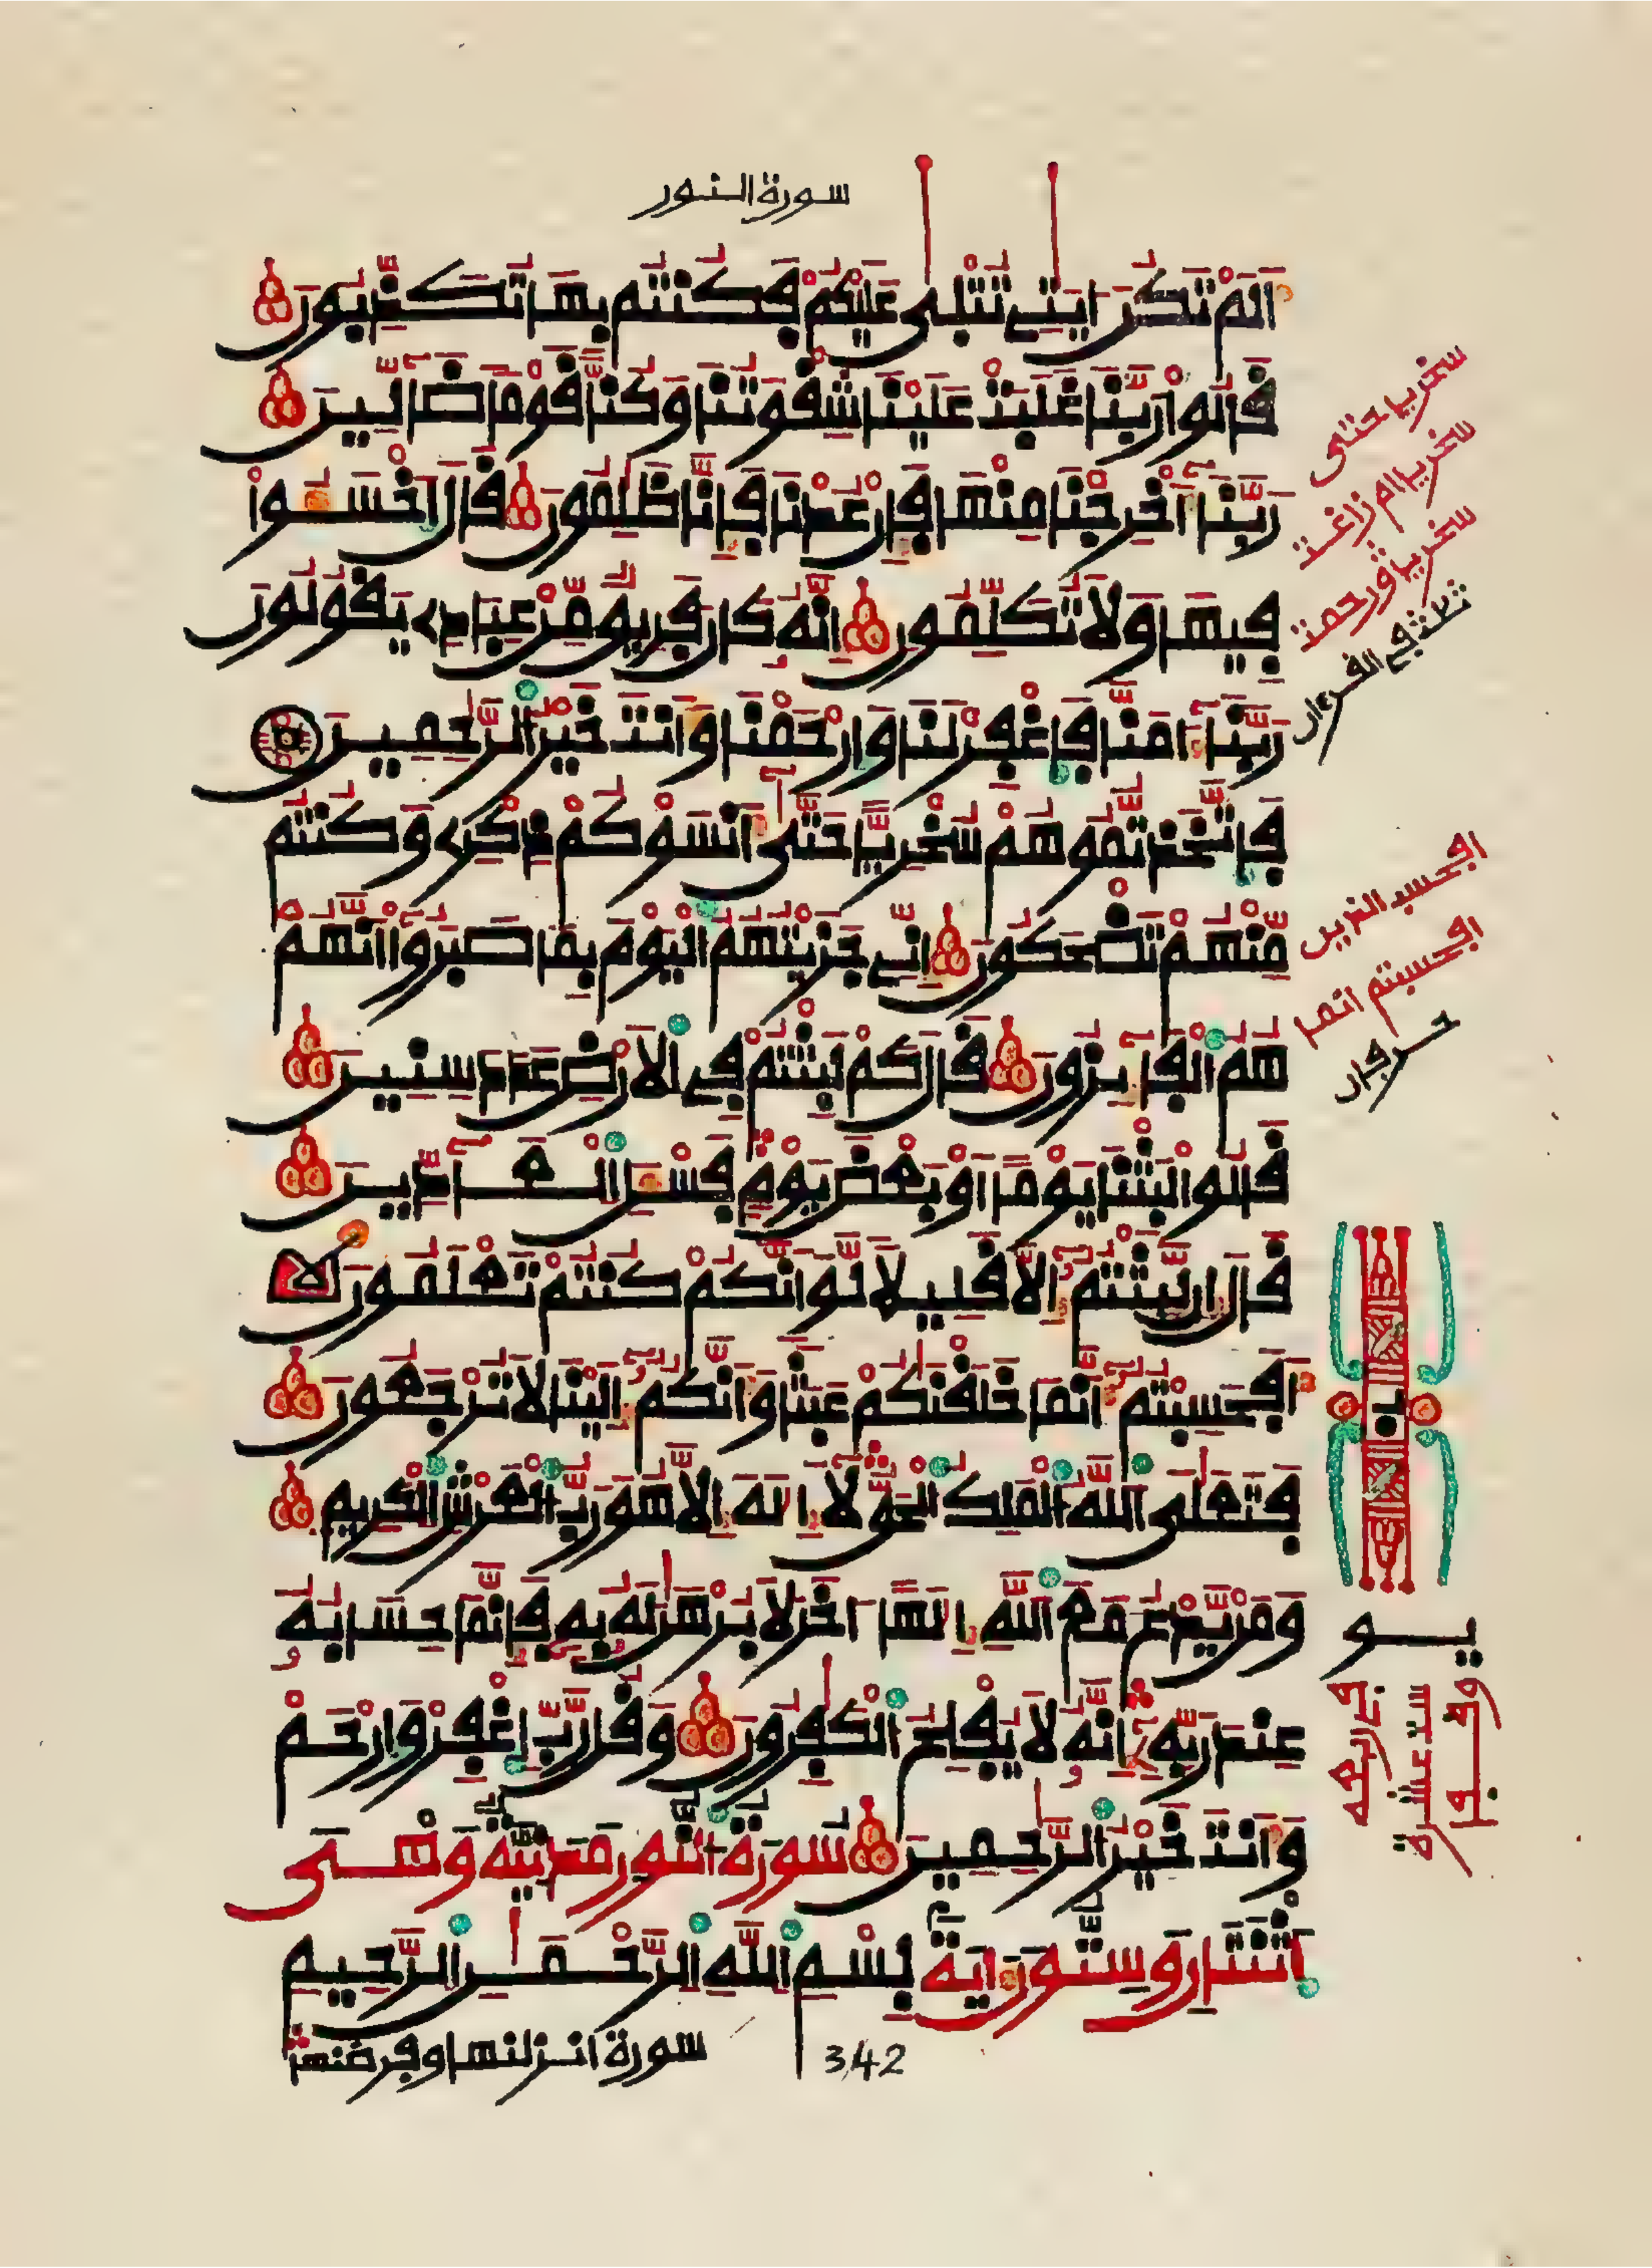 سورة النور
اَلَمْ تَكُنَ ايَٰتِے تُتْلٜىٰ عَلَيْكُمْ فَكُنتُم بِهَا تُكَذِّبُونَ
قَالُواْ رَبَّنَا غَلَبَتْ عَلَيْنَا شِقْوَتُنَا وَكُنَّا قَوْماً ضَآلِّينَ
رَبَّنَآ أَخْرِجْنَا مِنْهَا فَإِنْ عُدْنَا فَإِنَّا ظَٰلِمُونَ قَالَ اَخْسَـُٔواْ
فِيهَا وَلَا تُكَلِّمُونِ إِنَّهُۥ كَانَ فَرِيقٌ مِّنْ عِبَادِے يَقُولُونَ
رَبَّنَآ ءَامَنَّا فَاغْفِرْ لَنَا وَارْحَمْنَا وَأَنتَ خَيْرُ الرَّٰحِمِينَ
فَاتَّخَذتُّمُوهُمْ سُخْرِيّاً حَتَّىٰٓ أَنسَوْكُمْ ذِكْرِے وَكُنتُم
مِّنْهُمْ تَضْحَكُونَ إِنِّے جَزَيْتُهُمُ الْيَوْمَ بِمَا صَبَرُوٓاْ أَنَّهُمْ
هُمُ الْفَآئِزُونَ قَالَ كَمْ لَبِثْتُمْ فِے الْأَرْضِ عَدَدَ سِنِينَ
قَالُواْ لَبِثْنَا يَوْماً أَوْ بَعْضَ يَوْمٍ فَسْـَٔلِ الْعَآدِّينَ
قَالَ إِن لَّبِثْتُمُۥٓ إِلَّا قَلِيلًا لَّوَ اَنَّكُمْ كُنتُمْ تَعْلَمُونَ
أَفَحَسِبْتُمُۥٓ أَنَّمَا خَلَقْنَٰكُمْ عَبَثاً وَأَنَّكُمُۥٓ إِلَيْنَا لَا تُرْجَعُونَ
فَتَعَٰلَى اللَّهُ الْمَلِكُ الْحَقُّ لَآ إِلَٰهَ إِلَّا هُوَ رَبُّ الْعَرْشِ الْكَرِيمِ
وَمَنْ يَّدْعُ مَعَ اللَّهِ إِلَٰهاً ـاخَرَ لَا بُرْهَٰنَ لَهُۥ بِهِۦ فَإِنَّمَا حِسَابُهُۥ
عِندَ رَبِّهِۦٓ إِنَّهُۥ لَا يُفْلِحُ الْكَٰفِرُونَ وَقُل رَّبِّ اِغْفِرْ وَارْحَمْ
وَأَنتَ خَيْرُ الرَّٰحِمِينَ سُورَةُ النُّورِ مَدَنِيَّةٌ وَهْىَ
اَثْنَتَانِ وَسِتُّونَ ءَايَةً بِسْمِ اللَّهِ الرَّحْمَٰنِ الرَّحِيمِ
سورة انزلنها وفرضنها
342
سخريا حتى
سخريا ام زاغت
سخريا ورحمت
ثلثة في القرءان
افحسب الذين
افحسبتم انما
حرفان